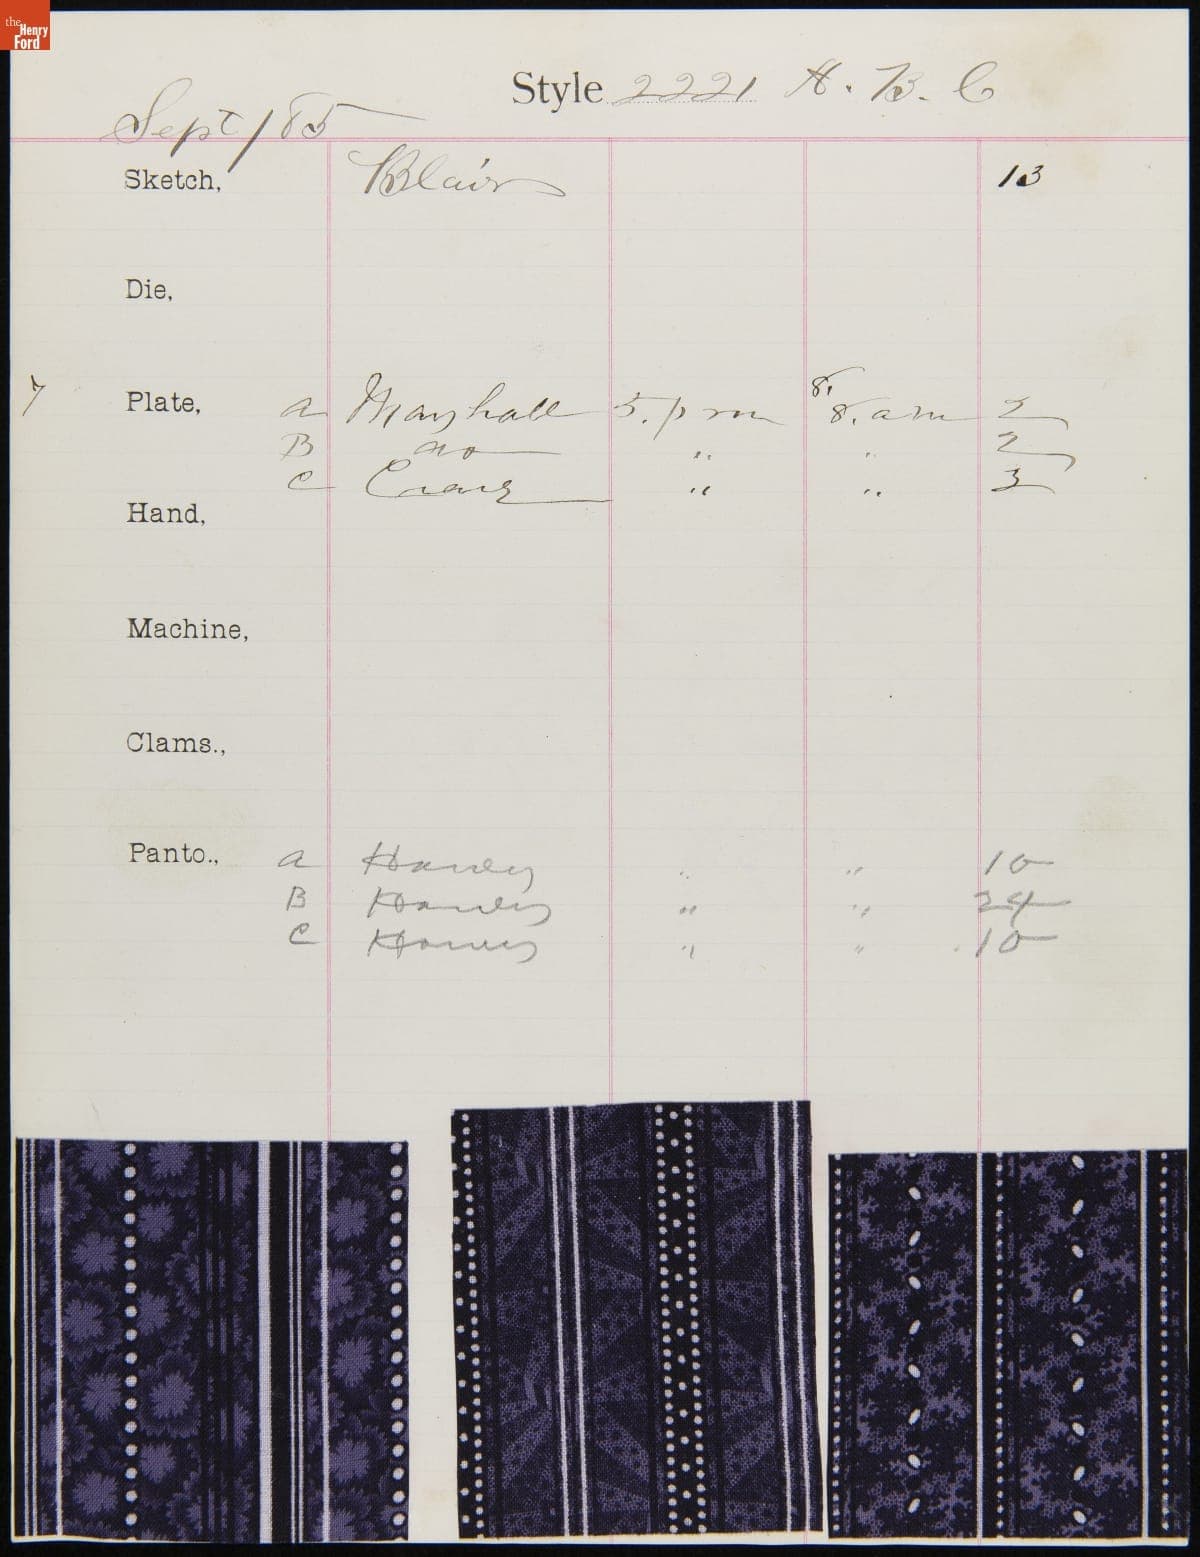 the Henry Ford
Style 2221 A. B. C
Sept / 85
Sketch, Blair 13
Die,
7 Plate, a Marshall 5. p m 8. 8. a m 2
B no " " 2
C Craig " " 3
Hand,
Machine,
Clams.,
Panto., a Harvey " " 10
B Harvey " " 24
C Harvey " " 10